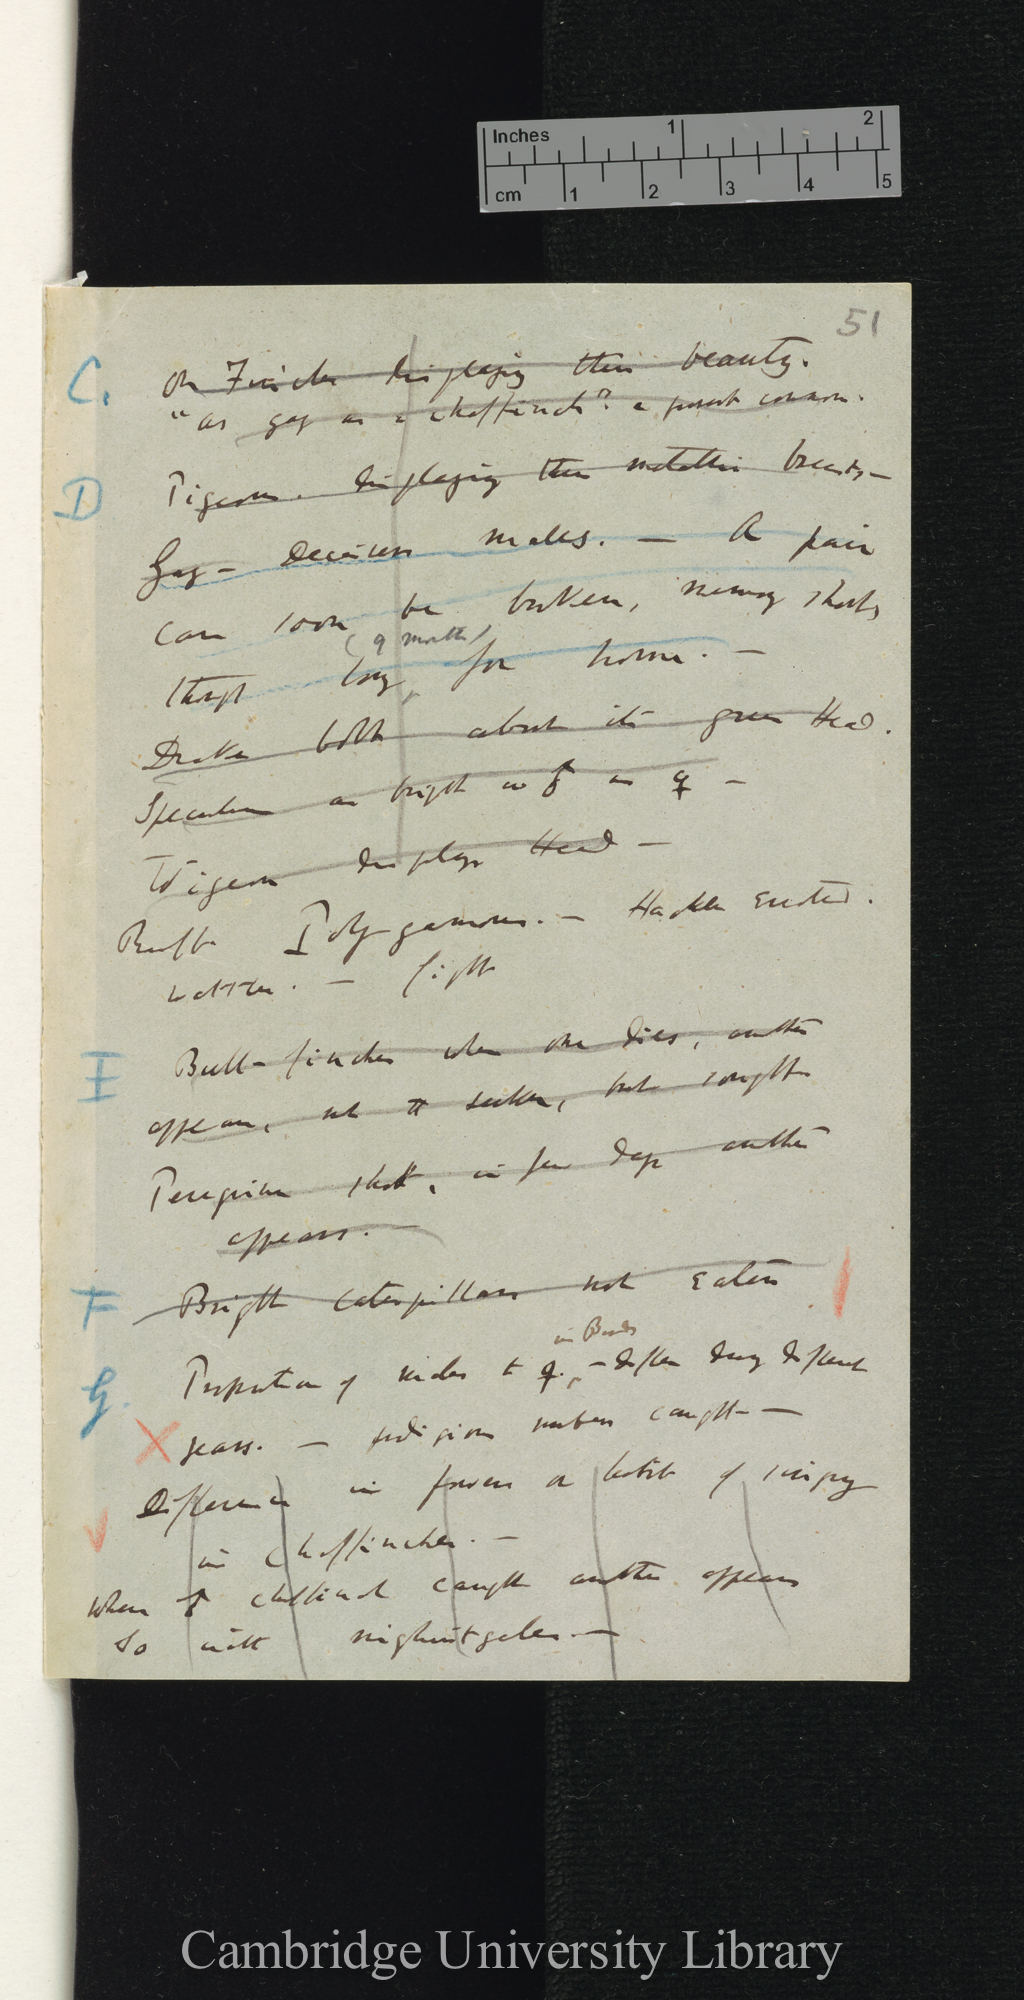 Inches 1 2
cm 1 2 3 4 5
51
C. On Finches displaying their beauty.
"as gay as a chaffinch"? a proverb common.
D Pigeons. displaying their metallic breasts—
Gay- deceiver males. — A pair
can soon be broken, memory short,
though long (9 months) for home. —
Drake both about its green Head.
Speculum as bright in ♂ as ♀ —
Wigeon displays Head —
Ruff Polygamous. — Hackles erected.
wattles. — fight
E Bull-finches when one dies, another
appears, not to seek, but sought
Peregrine shot, in few days another
appears. —
F Bright caterpillars not eaten
in Birds
G. Proportion of males to ♀. — differ during different
X years. — prodigious numbers caught —
Difference in powers or habit of singing
in Chaffinches. —
When ♂ chaffinch caught another appears
So with nightingales —
Cambridge University Library